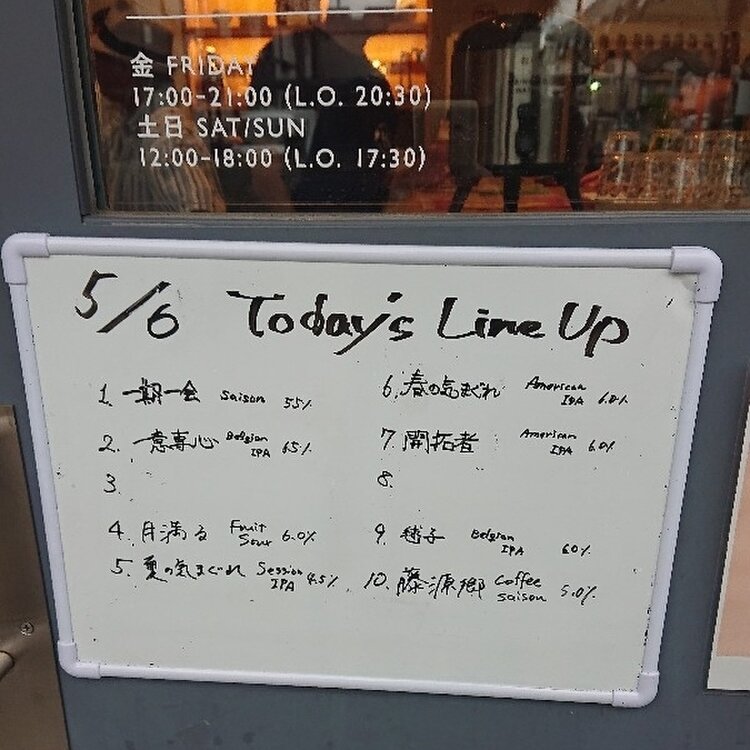 金 FRIDAY
17:00-21:00 (L.O. 20:30)
土日 SAT/SUN
12:00-18:00 (L.O. 17:30)
5/6 Today's Line Up
1. 一期一会 Saison 5.5%
2. 一意専心 Belgian IPA 6.5%
3.
4. 月満る Fruit Sour 6.0%
5. 夏の気まぐれ Session IPA 4.5%
6. 春の気まぐれ American IPA 6.0%
7. 開拓者 American IPA 6.0%
8.
9. 子 Belgian IPA 6.0%
10. 藤源郷 Coffee Saison 5.0%